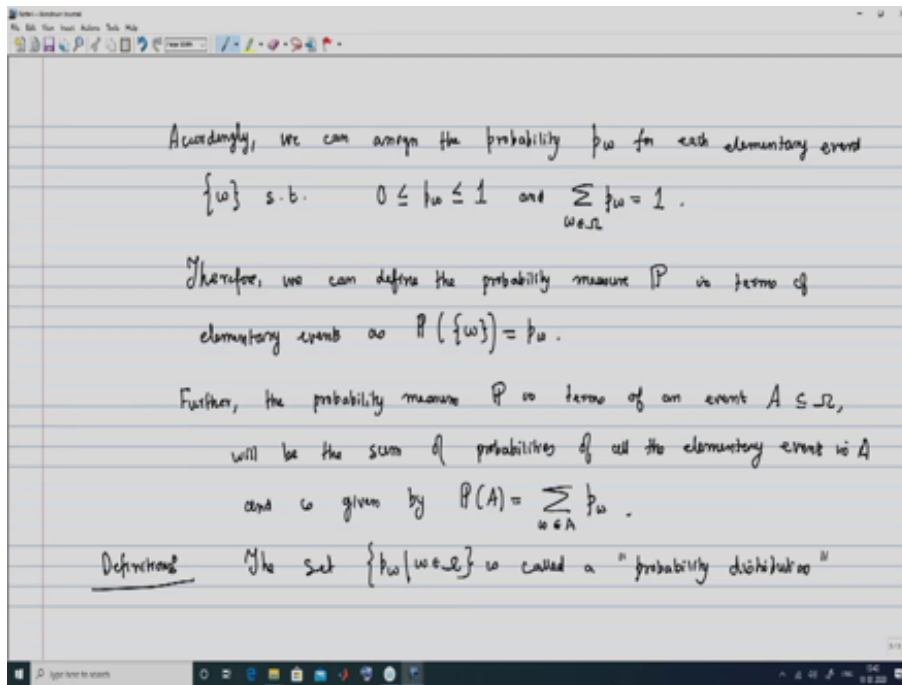 File Edit View Insert Actions Tools Help
Accordingly, we can assign the probability p_ω for each elementary event
{ω} s.t. 0 ≤ p_ω ≤ 1 and Σ_{ω∈Ω} p_ω = 1 .
Therefore, we can define the probability measure ℙ in terms of
elementary events as ℙ({ω}) = p_ω .
Further, the probability measure ℙ in terms of an event A ⊆ Ω,
will be the sum of probabilities of all the elementary event in A
and is given by ℙ(A) = Σ_{ω∈A} p_ω .
Definition The set {p_ω | ω∈Ω} is called a "probability distribution"
Type here to search